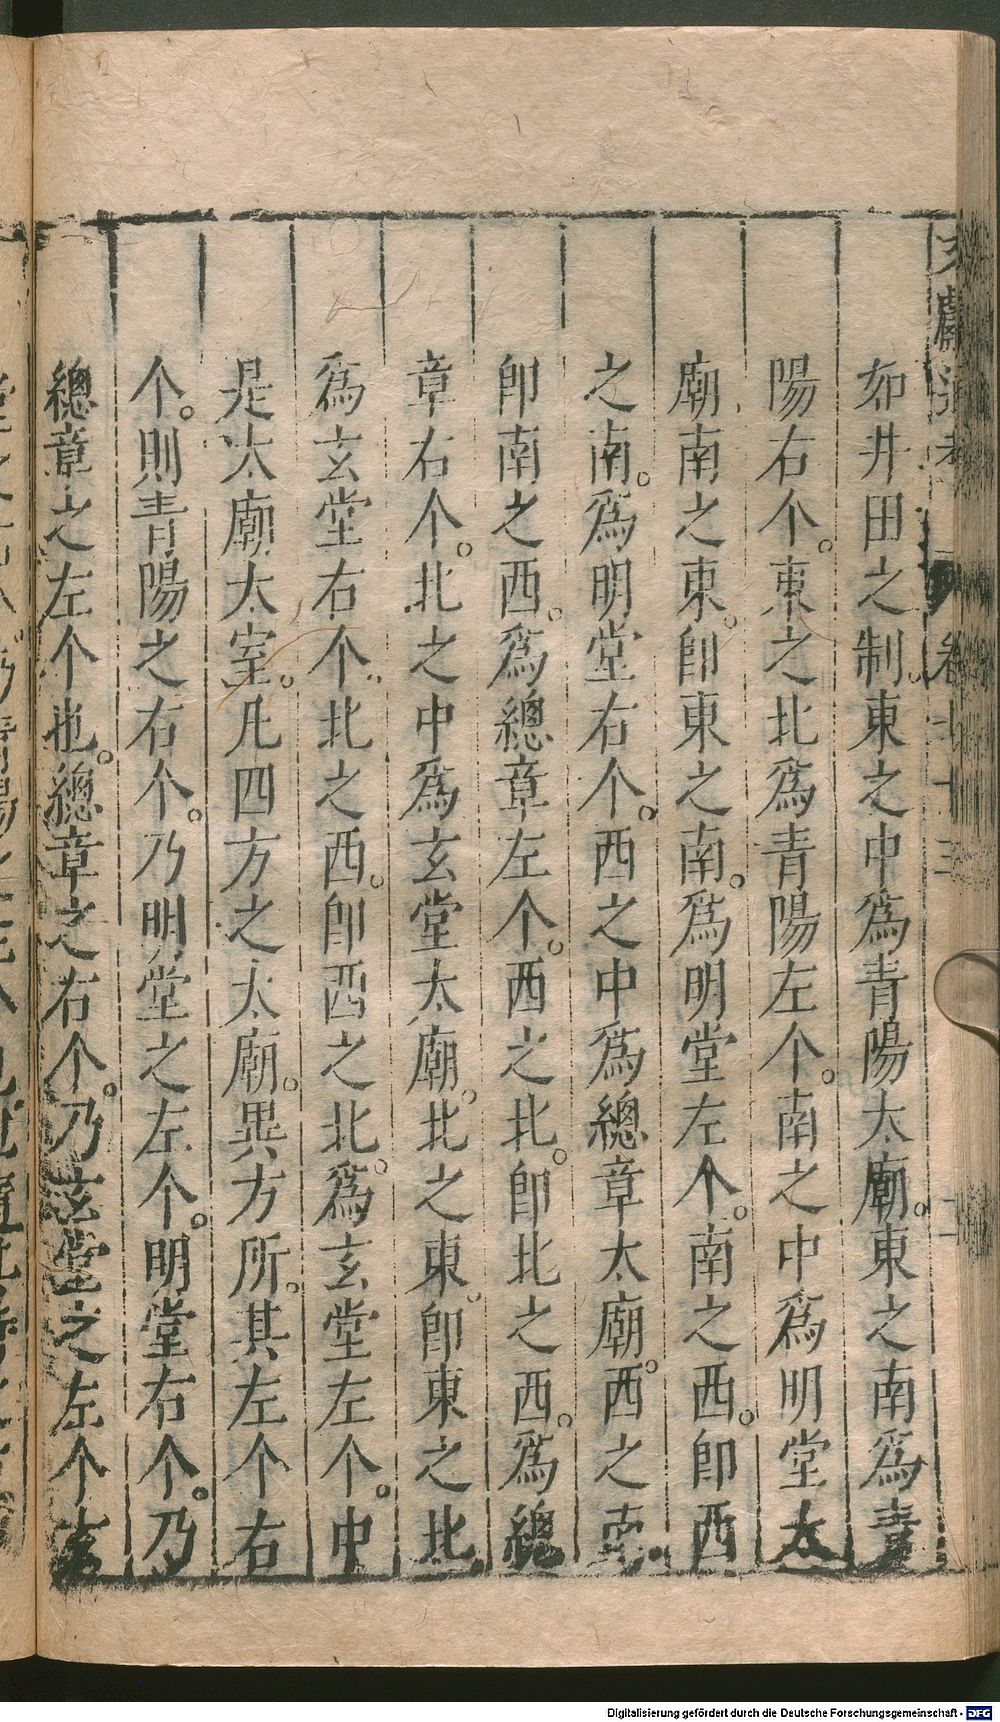 如井田之制。東之中爲青陽太廟。東之南爲青
陽右个。東之北爲青陽左个。南之中爲明堂太
廟南之東。卽東之南。爲明堂左个。南之西。卽西
之南。爲明堂右个。西之中爲總章太廟。西之南
卽南之西。爲總章左个。西之北。卽北之西。爲總
章右个。北之中爲玄堂太廟。北之東。卽東之北
爲玄堂右个。北之西。卽西之北。爲玄堂左个。中
是太廟太室。凡四方之太廟。異方所。其左个右
个。則青陽之右个。乃明堂之左个。明堂右个。乃
總章之左个也。總章之右个。乃玄堂之左个
Digitalisierung gefördert durch die Deutsche Forschungsgemeinschaft - DFG